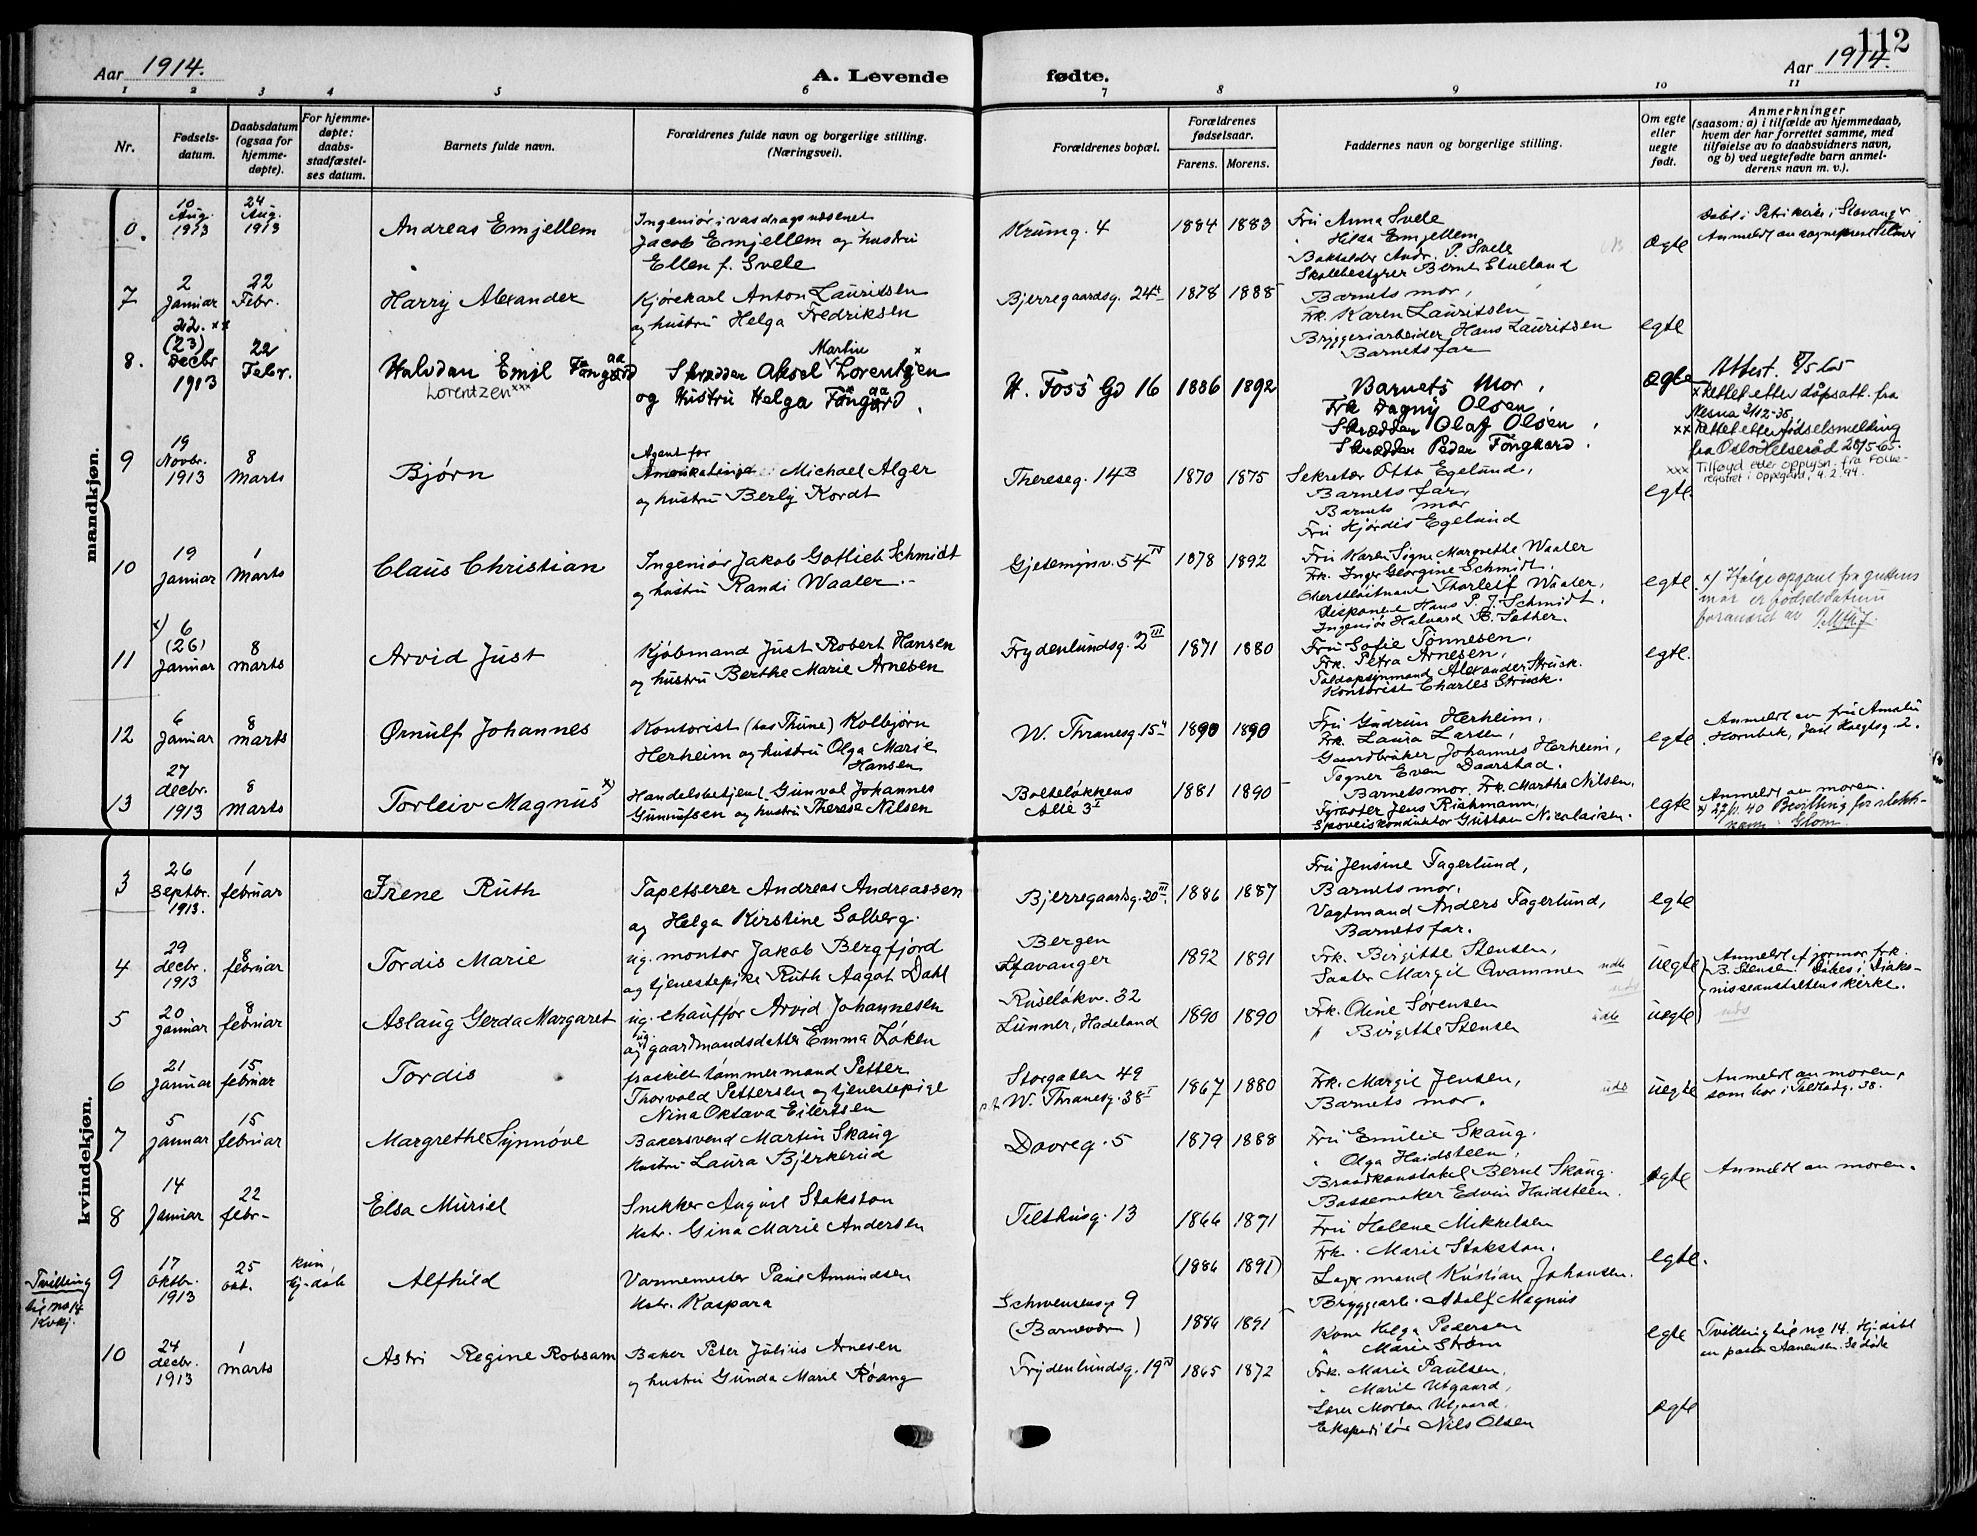 112
Aar 1914.
A. Levende
fødte.
Aar 1914.
1 2 3 4 5 6 7 8 9 10 11
Nr.
Fødsels-
datum.
Daabsdatum
(ogsaa for
hjemme-
døpte).
For hjemme-
døpte:
daabs-
stadfæstel-
ses datum.
Barnets fulde navn.
Forældrenes fulde navn og borgerlige stilling.
(Næringsvei).
Forældrenes bopæl.
Forældrenes
fødselsaar.
Farens. Morens.
Faddernes navn og borgerlige stilling.
Om egte
eller
uegte
født.
Anmerkninger
(saasom: a) i tilfælde av hjemmedaab,
hvem der har forrettet samme, med
tilføielse av to daabsvidners navn,
og b) ved uegtefødte barn anmel-
derens navn m. v.).
mandkjøn.
0.
10
Aug.
1913
24
Aug.
1913
Andreas Emjellem
Ingeniør i vasdragsvæsenet
Jacob Emjellem og hustru
Ellen f. Svele
Krumg. 4
1884 1883
Fru Anna Svele
" Helda Emjellem
Bokholder Andr. P. Svele
Skolebestyrer Bernt Stueland
ægte
Døbt i Petrikirke i Stavanger
Anmeldt av sogneprest
7
2
Januar
22
Febr.
Harry Alexander
Kjørekarl Anton Lauritsen
og hustru Helga Fredriksen
Bjerregaardsg. 24
1878 1888
Barnets mor,
Frk. Karen Lauritsen
Bryggeriarbeider Hans Lauritsen
Barnets far
egte
8.
22. xx
(23)
Decbr
1913
22
Febr.
Halvdan Emil
Lorentzen xxx
Martin
Skrædder Aksel Lorentzen
og Hustru Helga Fongaard.
H. Foss Gd 16
1886 1892
Barnets Mor,
Frk Dagny Olsen,
Skrædder Olaf Olsen,
Skrædder Peder Fongaard.
ægte
Attest. 8/5 65
x Rettet etter dåpsatt. fra
Nesna 3/12-35.
xx Rettet etter fødselsmelding
fra Oslo Helseråd 28/5-65.
xxx Tilføyd etter opplysn. fra Folke-
registret i Oppegård, 4.2.44.
9
19
Novbr.
1913
8
Marts
Bjørn
Agent for
Amerikalinje Michael Alger
og hustru Berly Kordt
Thereseg. 14B
1870 1875
Sekretær Otto Egeland,
Barnets far,
Barnets mor
Fru Hjørdis Egeland
egte.
10
19
Januar
1
Marts
Claus Christian
Ingeniør Jakob Gotlieb Schmidt
og hustru Randi Waaler.
Gjetemyrsv. 54 IV
1878 1892
Fru Karen Signe Margrethe Waaler
Frk. Inger Georgine Schmidt.
Oberstløitnant Thorleif Waaler,
Disponent Hans P. J. Schmidt.
Ingeniør Halvard B. Sæther.
egte.
x) Ifølge opgave fra guttens
mor er fødselsdatum
forandret av
11
x) 6
(26)
Januar
8
marts
Arvid Just
Kjøbmand Just Robert Hansen
og hustru Berthe Marie Arnesen
Frydenlundsg. 2 III
1871 1880
Fru Sofie Tønnesen,
Frk. Petra Arnesen,
Toldopsynmand Alexander Struck.
Kontorist Charles Struck.
egte.
12
6
Januar
8
marts
Ørnulf Johannes
Kontorist (hos Thune) Kolbjørn
Herheim og hustru Olga Marie
Hansen
W. Thranesg. 15
1890 1890
Fru Gudrun Herheim,
Frk. Laura Larsen,
Gaardbruker Johannes Herheim,
Tegner Even Daarstad.
egte
Anmeldt av fru Amalie
Hornbek, Jul. 2.
13
27
decbr.
1913
8
Marts
Torleiv Magnus x)
Handelsbetjent Gunval Johannes
Gunnufsen og hustru Therese Nilsen
Bolteløkkens
Allé 3 I
1881 1890
Barnets mor. Frk. Martha Nilsen.
Fyrbøter Jens Rishmann,
Sporveiskonduktør Gustav Nicolaisen.
egte
Anmeldt av moren.
x) 40 Bevilling for slekt-
navn - Glom.
kvindekjøn.
3
26
Septbr.
1913.
1
februar
Irene Ruth
Tapetserer Andreas Andreassen
og Helga Kirstine Solberg.
Bjerregaardsg. 20 III
1886 1887
Fru Jensine Fagerlund,
Barnets mor.
Vagtmand Anders Fagerlund,
Barnets far.
egte
4
29
decbr.
1913
8
februar
Tordis Marie
ug. montør Jakob Bergfjord
og tjenestepike Ruth Aagot Dahl
Bergen
Stavanger
1892 1891
Frk. Birgitte Stensen,
Søster Margit Qvammen
uegte
Anmeldt af jormor frk.
B. Stensen. Døbes i Diako-
nisseanstaltens kirke.
5
20
januar
8
februar
Aslaug Gerda Margaret
ug. chauffør Arvid Johannesen
og ug. gaardmandsdatter Emma Løken
Ruseløkv. 32
Lunner, Hadeland
1890 1890
Frk. Oline Sørensen
" Birgitte Stensen
uegte
6
21
Januar
15
februar
Tordis
fraskilt tømmermand Petter
Thorvald Pettersen og tjenestepige
Nina Oktava Eilertsen
Storgaten 49
W. Thranesg. 38 I
1867 1880
Frk. Margit Jensen,
Barnets mor.
uegte
Anmeldt av moren,
som bor i Toftesg. 38.
7
5
Januar
15
februar
Margrethe Synnøve
Bakersvend Martin Skaug
hustru Laura Bjerkerud
Dovreg. 5
1879 1888
Fru Emilie Skaug.
" Olga Haidsteen,
Brandkonstabel Bernt Skaug.
Bøssemaker Edvin Haidsteen.
ægte
Anmeldt av moren.
8
14
Januar
22
febr-
Elsa Muriel
Snekker August Stokston
Hstr. Gina Marie Andersen
Tilthusg. 13
1866 1871
Fru Helene Mikkelsen
Frk. Marie Stokston.
Lagermand Kristian Johansen.
Bryggearb. Adolf Magnus
egte.
Tvilling
til no 14
Kvkj.
9
17
Oktbr.
1913
25
okt.
kun
hj-døb
Alfhild
Varmemester Paul Amundsen
Hstr. Kaspara
(1886 1891)
Schwensensg 9
(Barnevæn)
1886 1891
Kone Helga Pedersen
" Marie Strøm
egte
Tvilling til no 14. Hj. døbt
av pastor Aanensen.
10
24
decbr.
1913
1
marts
Astri Regine Robsam
Baker Peter Julius Arnesen
og hustru Gunda Marie Roang
Frydenlundsg. 19 IV
1865 1872
Frk. Marie Paulsen,
" Marie Utgaard,
Lærer Morten Utgaard.
Ekspeditør Nils Olsen
ægte